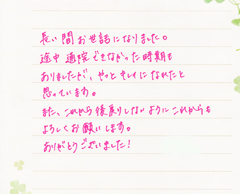 長い間お世話になりました。
途中通院できなかった時期も
ありましたが、やっとキレイになれたと
思っています。
また、これから後戻りしないようにこれからも
よろしくお願いします。
ありがとうございました!